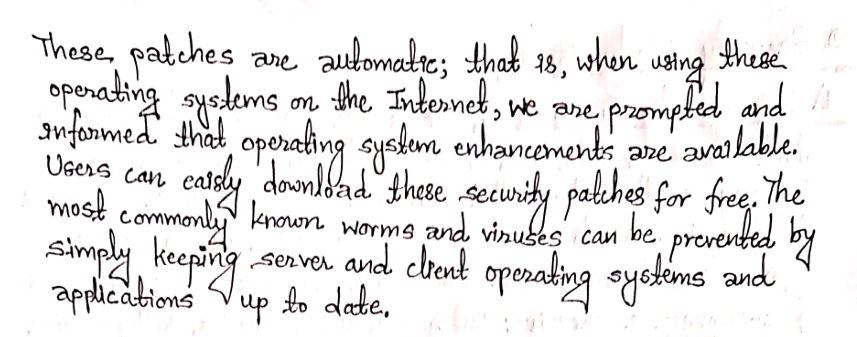 These patches are automatic; that is, when using these
operating systems on the Internet, we are prompted and
informed that operating system enhancements are available.
Users can eaisly download these security patches for free. The
most commonly known worms and viruses can be prevented by
simply keeping server and client operating systems and
applications up to date.